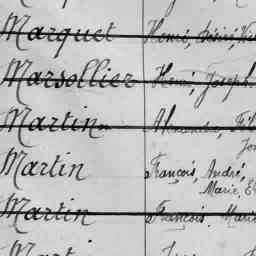 Marquet Henri, Désiré,
Marsollier Henri, Joseph
Martin Alexandre,
Martin François, André,
Marie,
Martin François, Marie